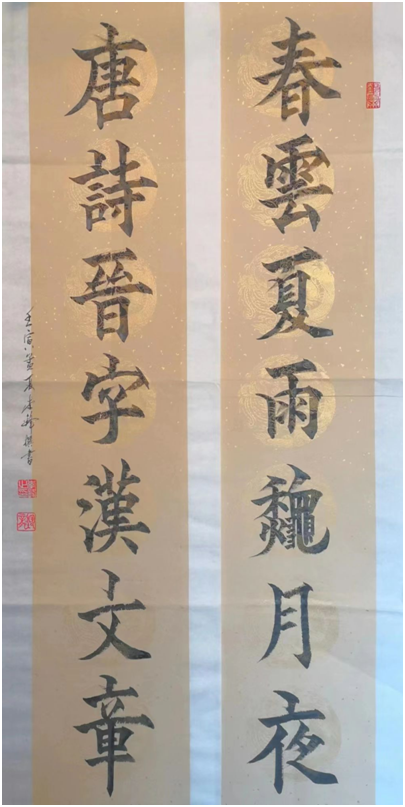 春雲夏雨龝月夜
唐詩晉字漢文章
壬寅盛夏